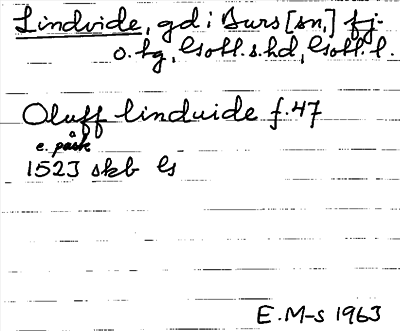 Lindvide, gd i Burs [sn.]
Gotl. s. hd, Gotl. l.
Oluff linduide f. 47
e. påsk
1523 skb
E. M-s 1963